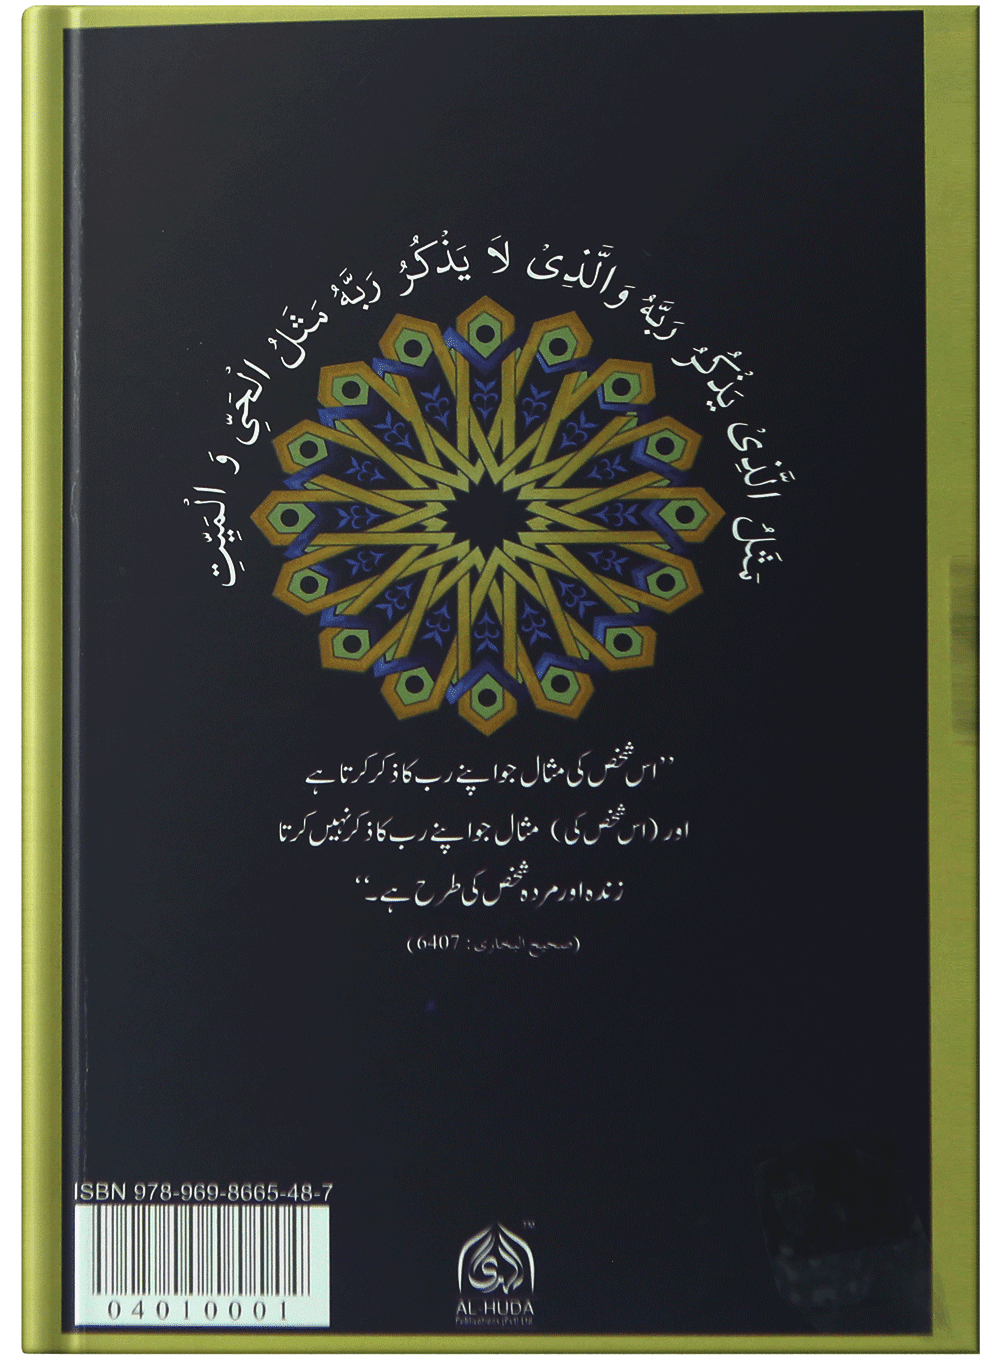 مَثَلُ الَّذِىْ يَذْكُرُ رَبَّهُ وَالَّذِىْ لَا يَذْكُرُ رَبَّهُ مَثَلُ الْحَىِّ وَ الْمَيِّتِ
”اس شخص کی مثال جو اپنے رب کا ذکر کرتا ہے
اور (اس شخص کی) مثال جو اپنے رب کا ذکر نہیں کرتا
زندہ اور مردہ شخص کی طرح ہے۔“
(صحیح البخاری: 6407)
ISBN 978-969-8665-48-7
04010001
الهدى
TM
AL-HUDA
Publications (Pvt) Ltd.